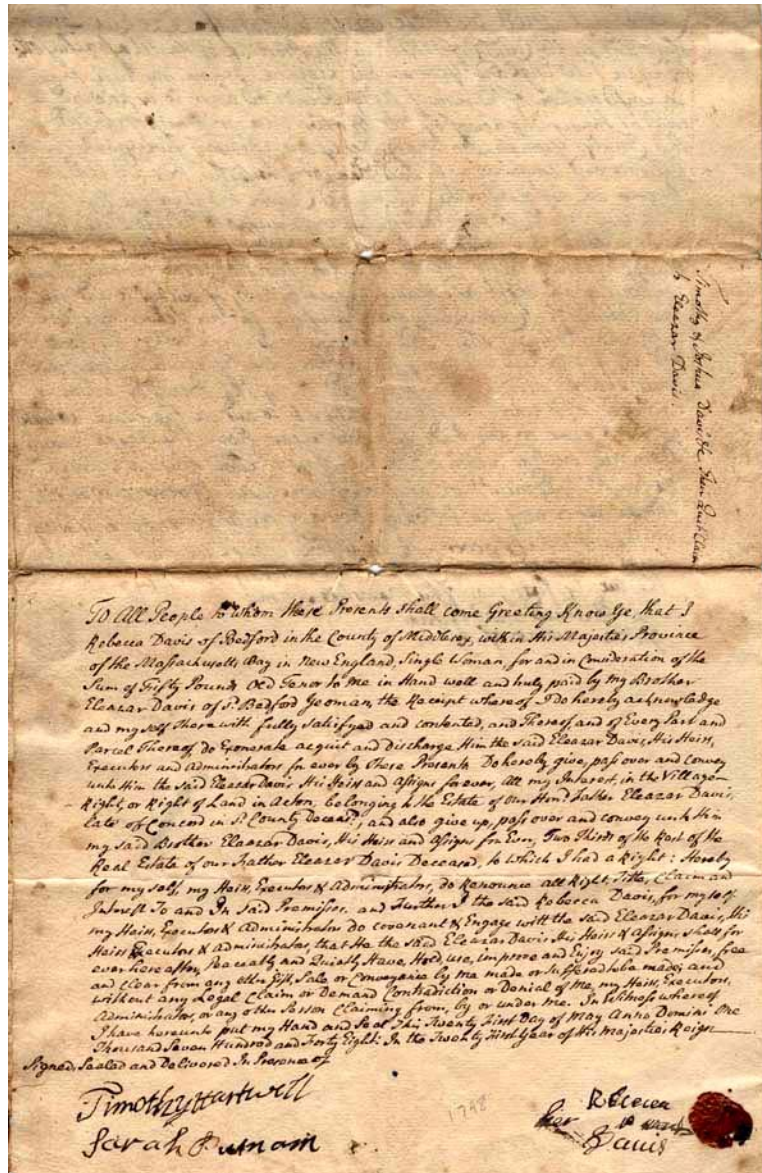 Timothy & Joshua Davis &c their Quitclaim
to Eleazar Davis.
To All People to whom these Presents shall come Greeting Know Ye, that I
Rebecca Davis of Bedford in the County of Middlesex, within His Majesties Province
of the Massachusetts Bay in New England, Single Woman, for and in Consideration of the
Sum of Fifty Pounds Old Tenor to me in Hand well and truly paid by my Brother
Eleazar Davis of sd. Bedford Yeoman, the Receipt whereof I do hereby acknowledge
and my self There with fully satisfyed and contented, and Thereof, and of Every Part and
Parcel Thereof do Exonerate acquit and Discharge Him the said Eleazar Davis, His Heirs,
Executors and Administrators for ever by These Presents Do hereby give, pass over and Convey
unto Him the said Eleazar Davis His Heirs and Assigns forever, All my Interest, in the Village-
Right, or Right of Land in Acton, belonging to the Estate of our Hond. Father Eleazar Davis,
Late of Concord in sd. County Deceasd., and also give up, pass over and convey unto Him
my said Brother Eleazar Davis, His Heirs and Assigns for Ever, Two Thirds of the Rest of the
Real Estate of our Father Eleazar Davis Deceased, to which I had a Right: Hereby
for my self, my Heirs, Executors & Administrators, do Renounce all Right, Title, Claim and
Interest To and In said Premisses. and Further I the said Rebecca Davis, for my self
my Heirs, Executors & Administrators do covenant & Engage with the said Eleazar Davis, His
Heirs Executors & Administrators, that He the said Eleazar Davis His Heirs & Assigns shall for
ever hereafter, Peaceably and Quietly Have, Hold, use, improve and Enjoy said Premisses, free
and clear from any other Gift, Sale or Conveyance by me made or Suffered to be made; and
without any Legal Claim or Demand Contradiction or Denial of me, my Heirs, Executors,
Administrators, or any other Person Claiming from, by or under me. In Witness whereof
I have hereunto put my Hand and Seal This Twenty First Day of May Anno Domini One
Thousand Seven Hundred and Forty Eight: In the Twenty First Year of His Majesties Reign
Signed, Sealed and Delivered In Presence of
Timothy Hartwell
Sarah Putnam
1748
Rebecca
her mark
Davis